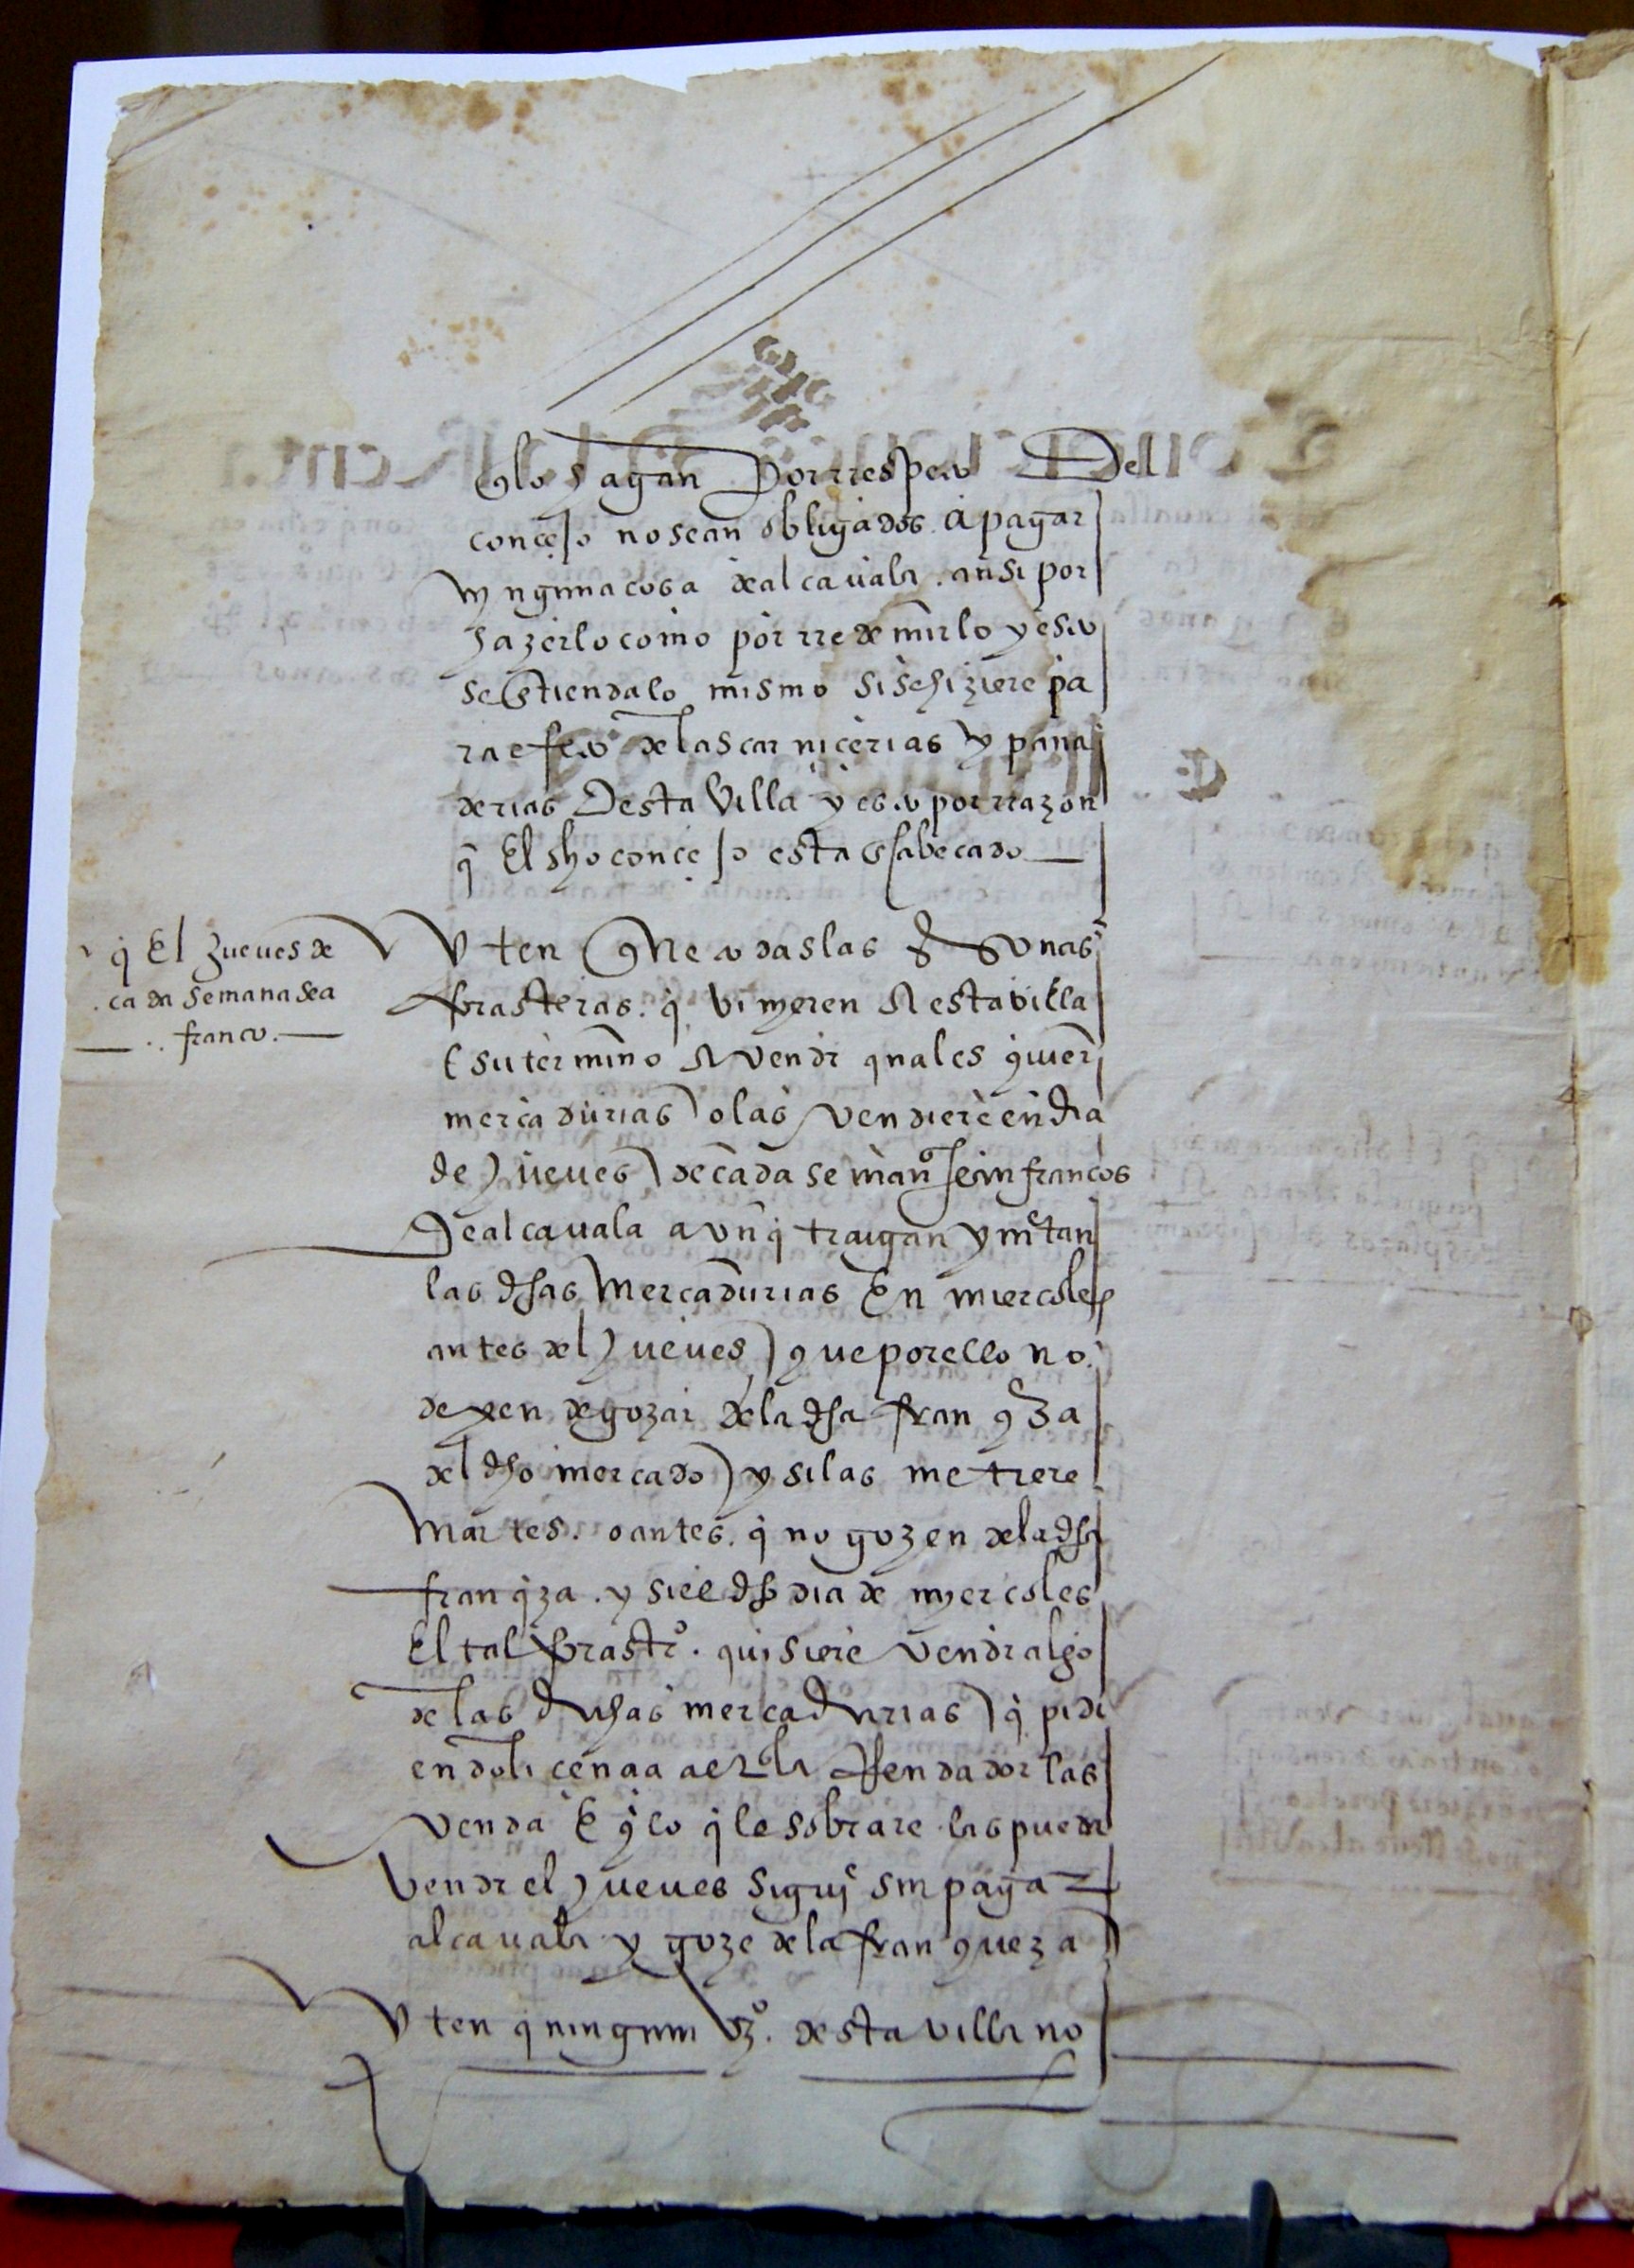 que lo hagan Por rrespeto Del
conçejo no sean obligados a pagar
nynguna cosa de alcauala ansi por
hazerlo como por rredemirlo y esto
se entienda lo mismo si se hiziere pa
ra efeto de las carniçerias y pana
derias Desta Villa y esto por rrazon
q̃ El dho conçejo esta encabeçado
q̃ El Jueves de
cada semana sea
franco
Yten que todas las personas
forasteras q̃ vinyeren A esta villa
E su termino A vendr quales quier
mercadurias o las vendierē en dia
de Jueues de cada semana sean francos
de alcauala avnq̃ traigan y metan
las dhas Mercadurias En miercoles
antes del Jueues que por ello no
dexen de gozar de la dha franqza
del dho mercado y si las metiere
Martes o antes q̃ no gozen de la dha
franqza y si el dho dia de myercoles
El tal forastro quisiere vendr algo
de las dichas mercadurias q̃ pidi
endo liçençia al Arrendador las
venda E q̃ lo q̃ le sobrare las pueda
vendr el Jueues sigui^e sin pagar
alcauala y goze de la franqueza
Yten q̃ ningun vzº desta villa no